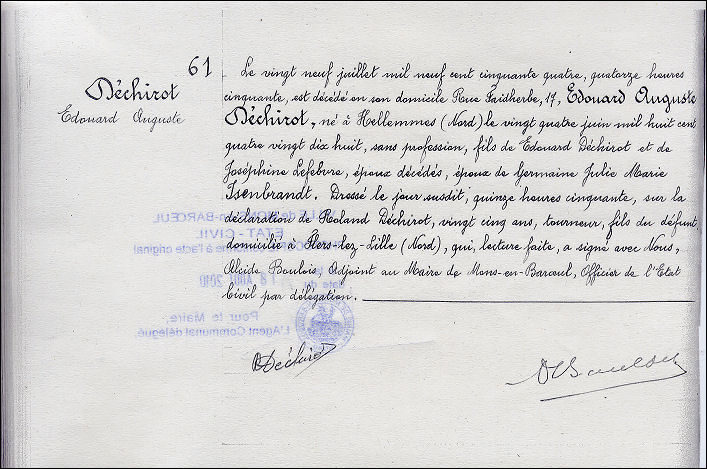 61
Déchirot
Edouard Auguste
Le vingt neuf juillet mil neuf cent cinquante quatre, quatorze heures
cinquante, est décédé en son domicile Rue Faidherbe, 17, Edouard Auguste
Déchirot, né à Hellemmes (Nord) le vingt quatre juin mil huit cent
quatre vingt dix huit, sans profession, fils de Edouard Déchirot et de
Joséphine Lefebvre, époux décédés, époux de Germaine Julie Marie
Isenbrandt. Dressé le jour susdit, quinze heures cinquante, sur la
déclaration de Roland Déchirot, vingt cinq ans, tourneur, fils du défunt
domicilié à Flers-lez-Lille (Nord), qui, lecture faite, a signé avec Nous,
Alcide Boulois, Adjoint au Maire de Mons-en-Barœul, Officier de l'Etat
Civil par délégation.
VILLE de MONS-en-BARŒUL
ETAT-CIVIL
à l'acte original
AOUT 2010
Pour le Maire,
L'Agent Communal délégué.
RDéchirot